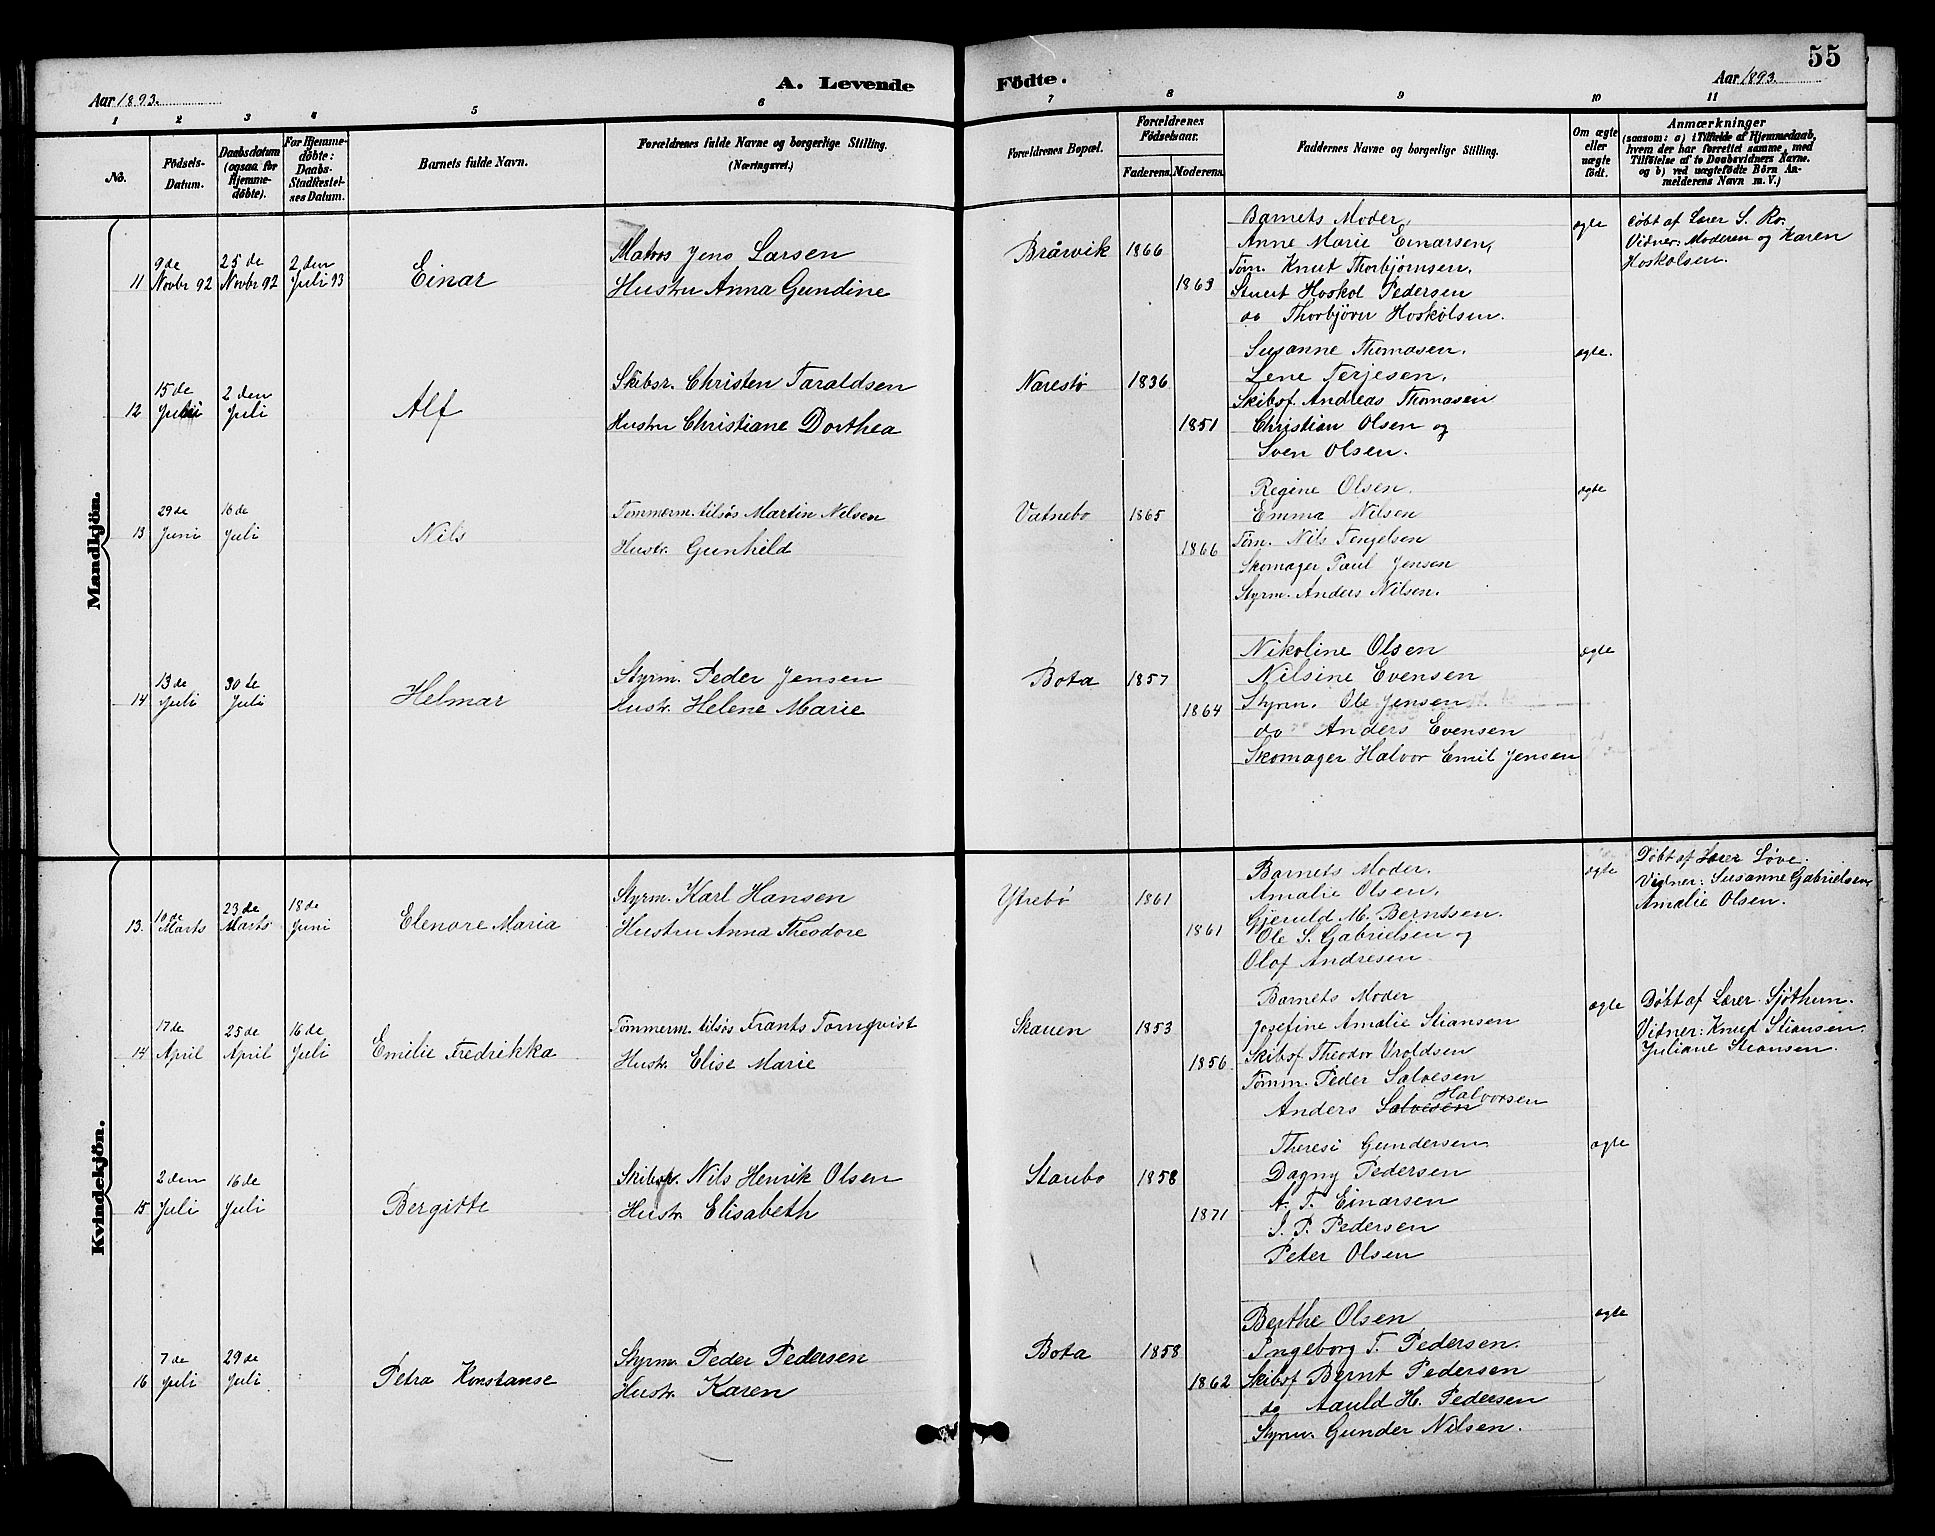 55
Aar 1893.
A. Levende Födte.
Aar 1893.
1 2 3 4 5 6 7 8 9 10 11
No.
Födsels-Datum.
Daabsdatum (ogsaa for Hjemme-döbte).
For Hjemme-döbte: Daabs-Stadfæstel-ses Datum.
Barnets fulde Navn.
Forældrenes fulde Navne og borgerlige Stilling. (Næringsvei.)
Forældrenes Bopæl.
Forældrenes Födselsaar.
Faderens. Moderens.
Faddernes Navne og borgerlige Stilling.
Om ægte eller uægte födt.
Anmærkninger
(saasom: a) i Tilfælde af Hjemmedaab,
hvem der har forrettet samme, med
Tilföielse af to Daabsvidners Navne.
og b) ved uægtefödte Börn An-
melderens Navn m. V.)
Mandkjön.
11 9de Novbr 92 25de Novbr 92 2den Juli 93 Einar
Matros Jens Larsen
Hustru Anna Gundine
Bråvik 1866 1863
Barnets Moder,
Anne Marie Einarsen,
Tøm. Knut Thorbjørnsen.
Stuert Hoskol Pedersen
do Thorbjörn Hoskolsen.
ægte
Döbt af Lærer S. Ro.
Vidner: Moderen og Karen
Hoskolsen.
12 15de Juni 2den Juli Alf
Skibsr. Christen Taraldsen
Hustru Christiane Dorthea
Narestø 1836 1851
Susanne Thomasen.
Lene Terjesen.
Skibsf. Andreas Thomasen
Christian Olsen og
Sven Olsen.
ægte.
13 29de Juni 16de Juli Nils
Tømmerm. tilsøs Martin Nilsen
Hustr. Gunhild
Vatnebo 1865 1866
Regine Olsen.
Emma Nilsen
Tøm. Nils Tengelsen
Skomager Paul Jensen
Styrm. Anders Nilsen.
ægte
14 13de Juli 30te Juli Helmar
Styrm. Peder Jensen
Hustr. Helene Marie
Bota 1857 1864
Nikoline Olsen
Nilsine Evensen
Styrm. Ole Jensen
do Anders Evensen
Skomager Halvor Emil Jensen
ægte
Kvindekjön.
13. 10de Marts 23de Marts 18de Juni Elenore Maria
Styrm. Karl Hansen
Hustru Anna Theodore
Ytrebø 1861 1861
Barnets Moder.
Amalie Olsen.
Gjeruld M. Berntsen.
Ole S. Gabrielsen og
Olaf Andresen
ægte
Döbt af Lærer Løve.
Vidner: Susanne Gabrielsen,
Amalie Olsen.
14 17de April 25de April 16de Juli Emilie Fredrikka
Tømmerm. tilsøs Frants Tornqvist
Hustr. Elise Marie
Skauen 1853 1856
Barnets Moder
Josefine Amalie Stiansen
Skibsf Theodor Vroldsen
Tømm. Peder Salvesen
Anders Salvesen Halvorsen
ægte
Döbt af Lærer Sjøthun.
Vidner: Knud Stiansen.
Juliane Stiansen.
15 2den Juli 16de Juli Bergitte
Skibsr. Nils Henrik Olsen
Hustr. Elisabeth
Staubo 1858 1871
Theresi Gundersen
Dagny Pedersen
A. T. Einarsen
J. P. Pedersen
Peter Olsen
ægte
16 7de Juli 29de Juli Petra Konstanse
Styrm. Peder Pedersen
Hustr. Karen
Bota 1858 1862
Berthe Olsen
Ingeborg T. Pedersen.
Skibsf Bernt Pedersen
do Aauld H. Pedersen
Styrm. Gunder Nilsen.
ægte